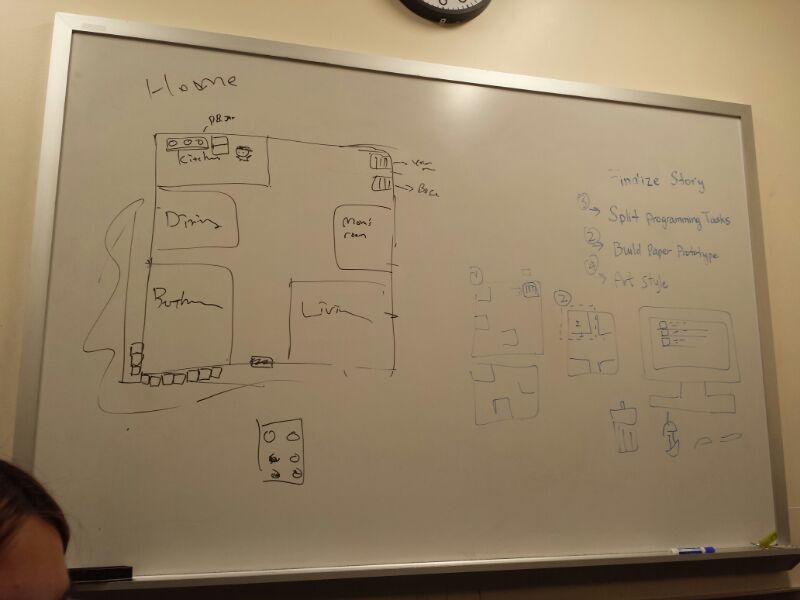 Home
Kitchen
Dining
Mom's
room
Bathroom
Living
Finalize Story
Split Programming Tasks
② Build Paper Prototype
Art Style
②